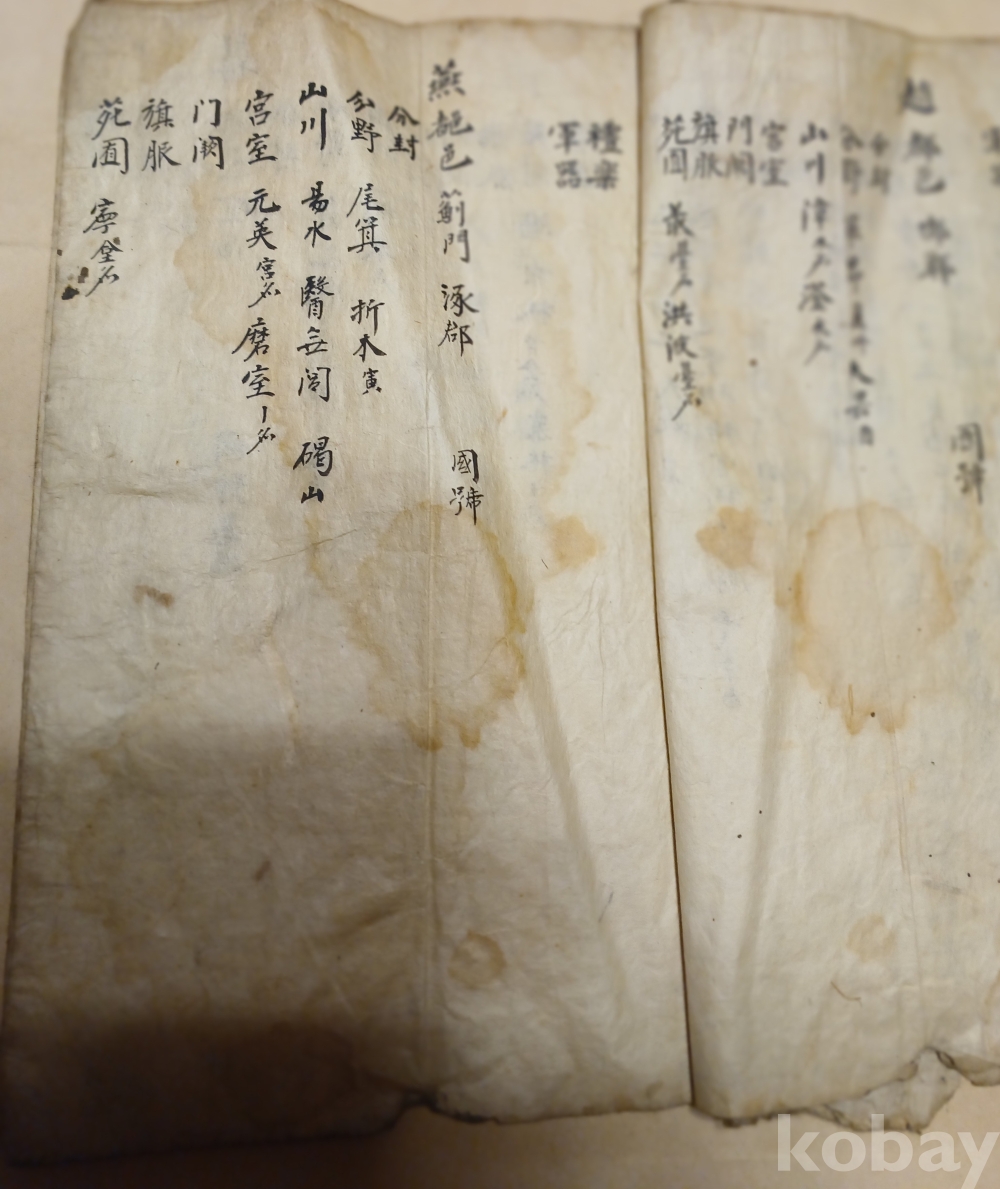 趙 都邑 邯鄲
國號
分封
分野
山川 漳水名 滏水名
宮室
門闕
旗服
苑囿 叢臺名 洪波臺名
禮樂
軍器
燕 都邑 薊門 涿郡
國號
分封
分野 尾箕 析木寅
山川 易水 醫無閭 碣山
宮室 元英宮名 磨室丨名
门闕
旗服
苑囿 寧臺名
kobay